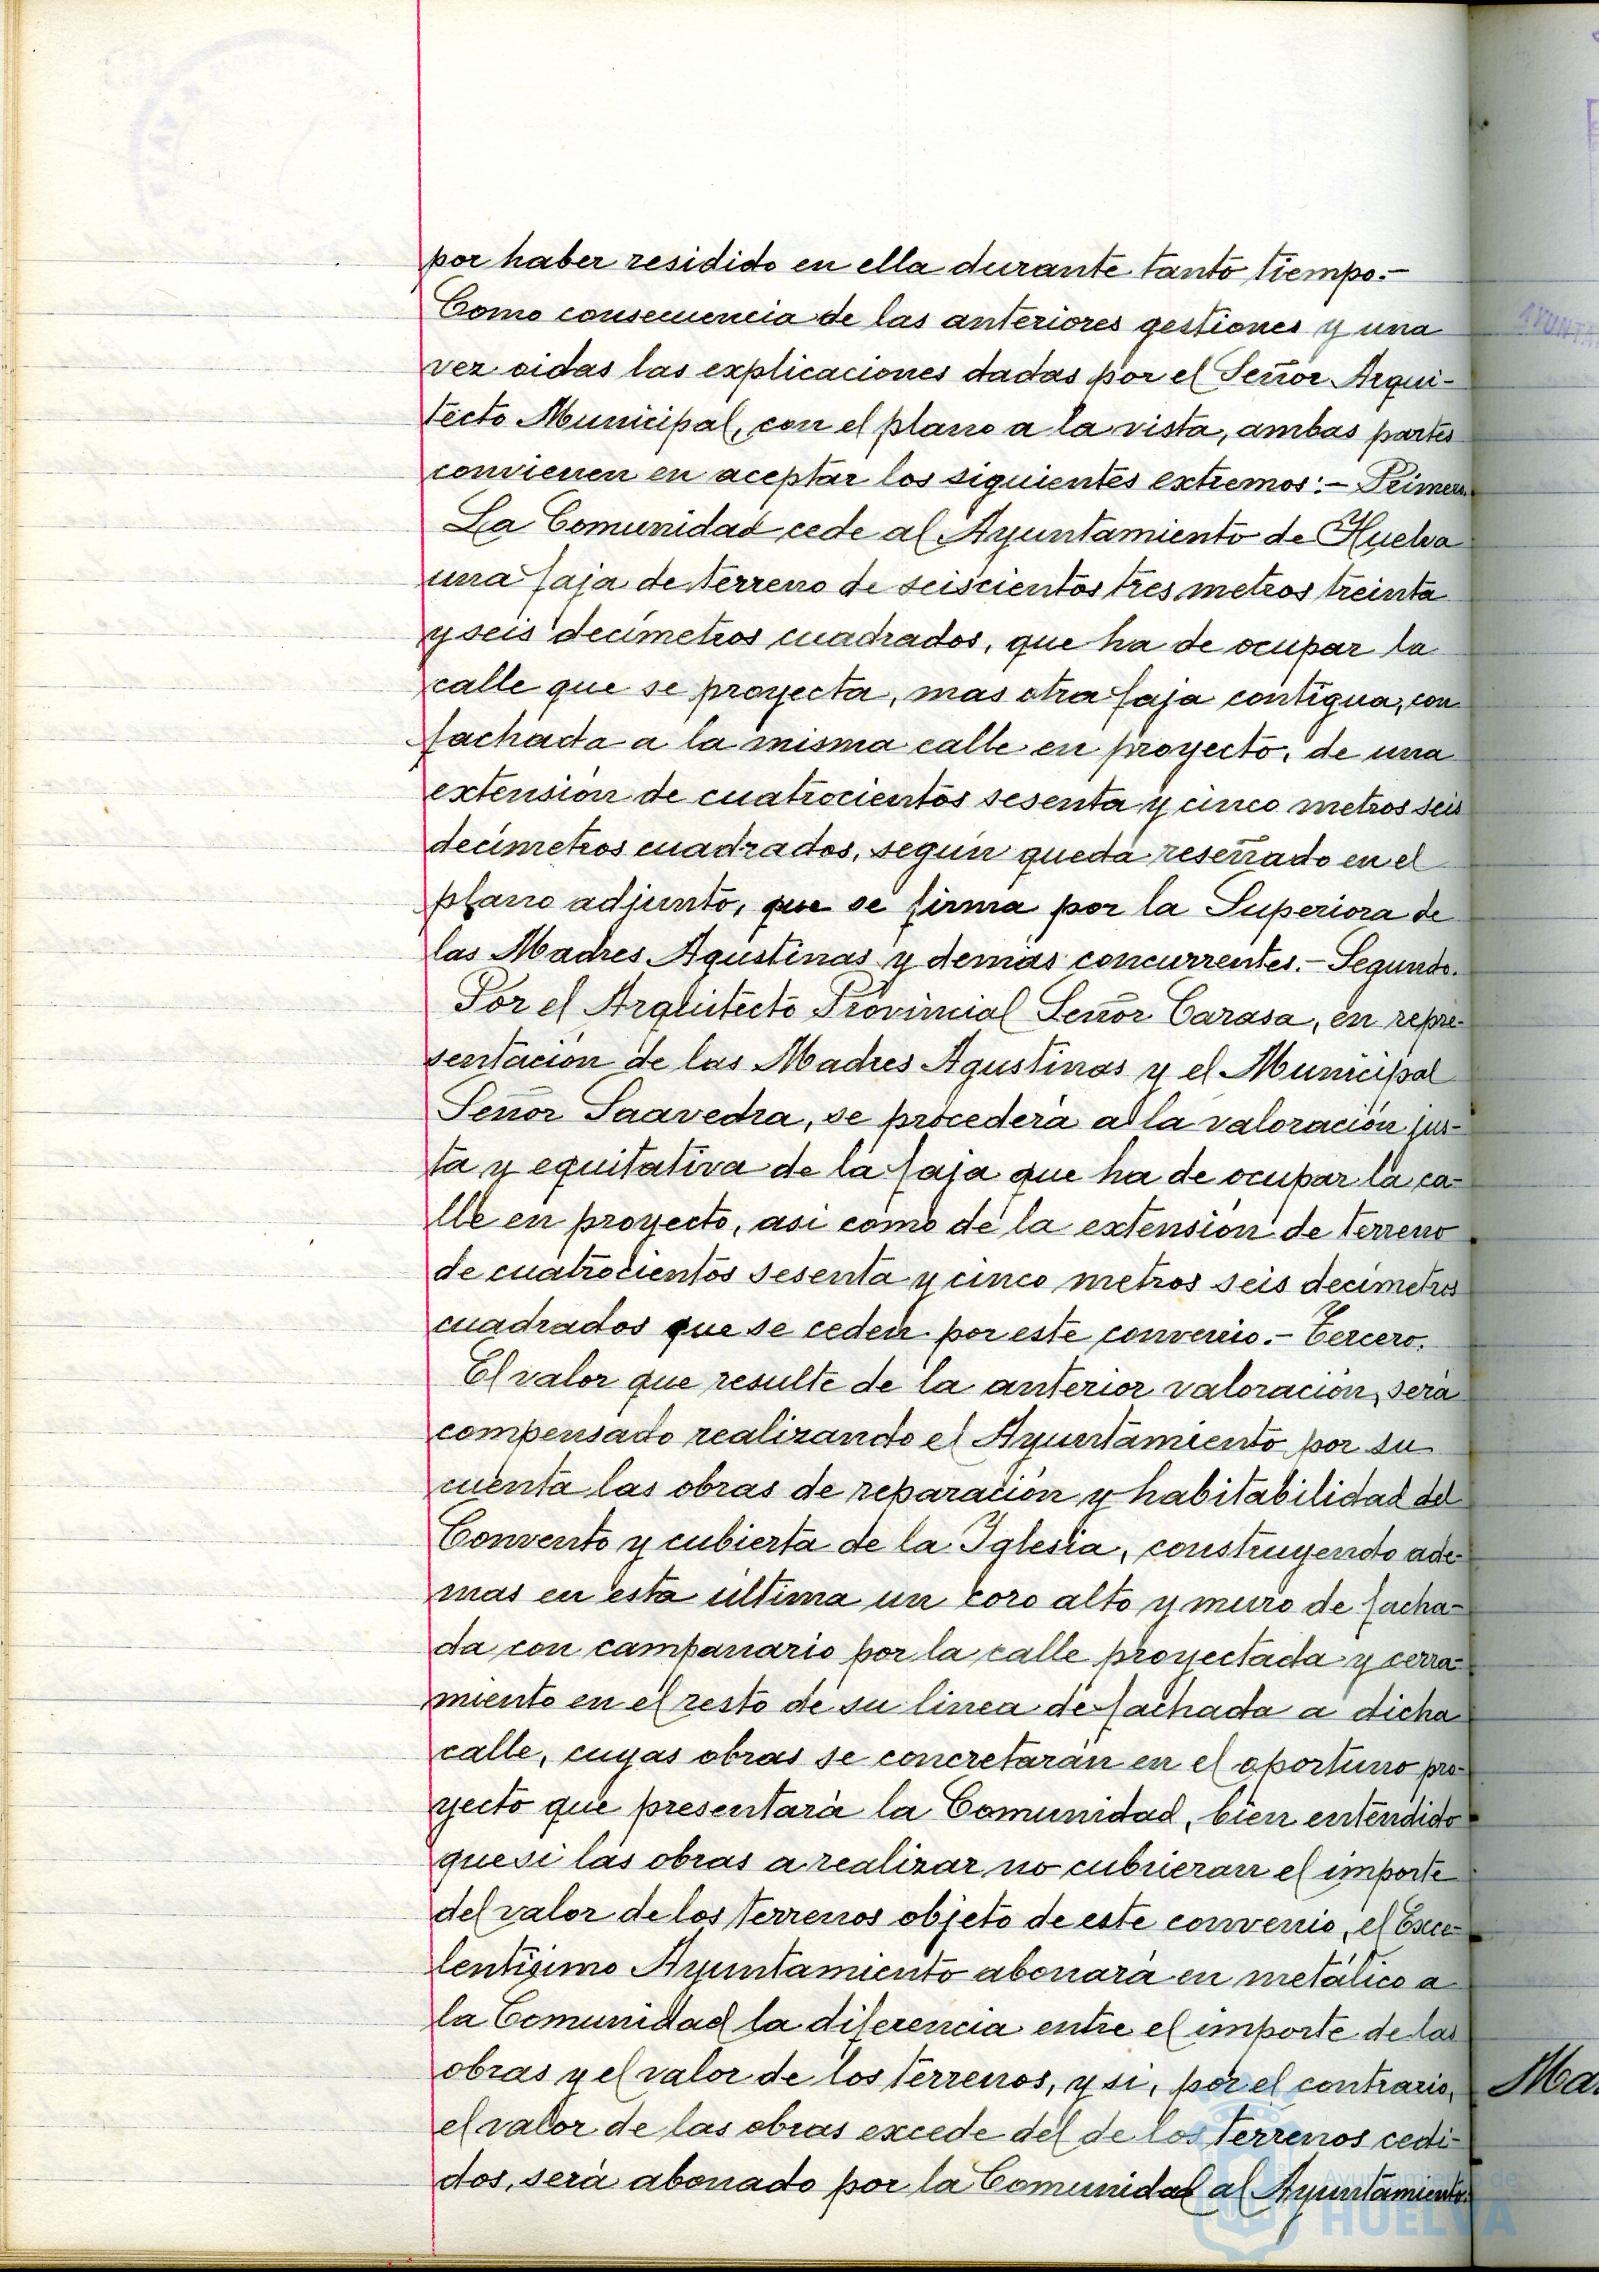 por haber residido en ella durante tanto tiempo.-
Como consecuencia de las anteriores gestiones y una
vez oidas las explicaciones dadas por el Señor Arqui-
tecto Municipal, con el plano a la vista, ambas partes
convienen en aceptar los siguientes extremos:- Primero.
La Comunidad cede al Ayuntamiento de Huelva
una faja de terreno de seiscientos tres metros treinta
y seis decímetros cuadrados, que ha de ocupar la
calle que se proyecta, mas otra faja contigua, con
fachada a la misma calle en proyecto, de una
extensión de cuatrocientos sesenta y cinco metros seis
decímetros cuadrados, según queda reseñado en el
plano adjunto, que se firma por la Superiora de
las Madres Agustinas y demás concurrentes.- Segundo.
Por el Arquitecto Provincial Señor Carasa, en repre-
sentación de las Madres Agustinas y el Municipal
Señor Saavedra, se procederá a la valoración jus-
ta y equitativa de la faja que ha de ocupar la ca-
lle en proyecto, asi como de la extensión de terreno
de cuatrocientos sesenta y cinco metros seis decímetros
cuadrados que se ceden por este convenio.- Tercero.
El valor que resulte de la anterior valoración, será
compensado realizando el Ayuntamiento por su
cuenta las obras de reparación y habitabilidad del
Convento y cubierta de la Iglesia, construyendo ade-
mas en esta última un coro alto y muro de facha-
da con campanario por la calle proyectada y cerra-
miento en el resto de su linea de fachada a dicha
calle, cuyas obras se concretarán en el oportuno pro-
yecto que presentará la Comunidad, bien entendido
que si las obras a realizar no cubrieran el importe
del valor de los terrenos objeto de este convenio, el Exce-
lentísimo Ayuntamiento abonará en metálico a
la Comunidad la diferencia entre el importe de las
obras y el valor de los terrenos, y si, por el contrario,
el valor de las obras excede del de los terrenos cedi-
dos, será abonado por la Comunidad al Ayuntamiento.
Ayuntamiento de
HUELVA